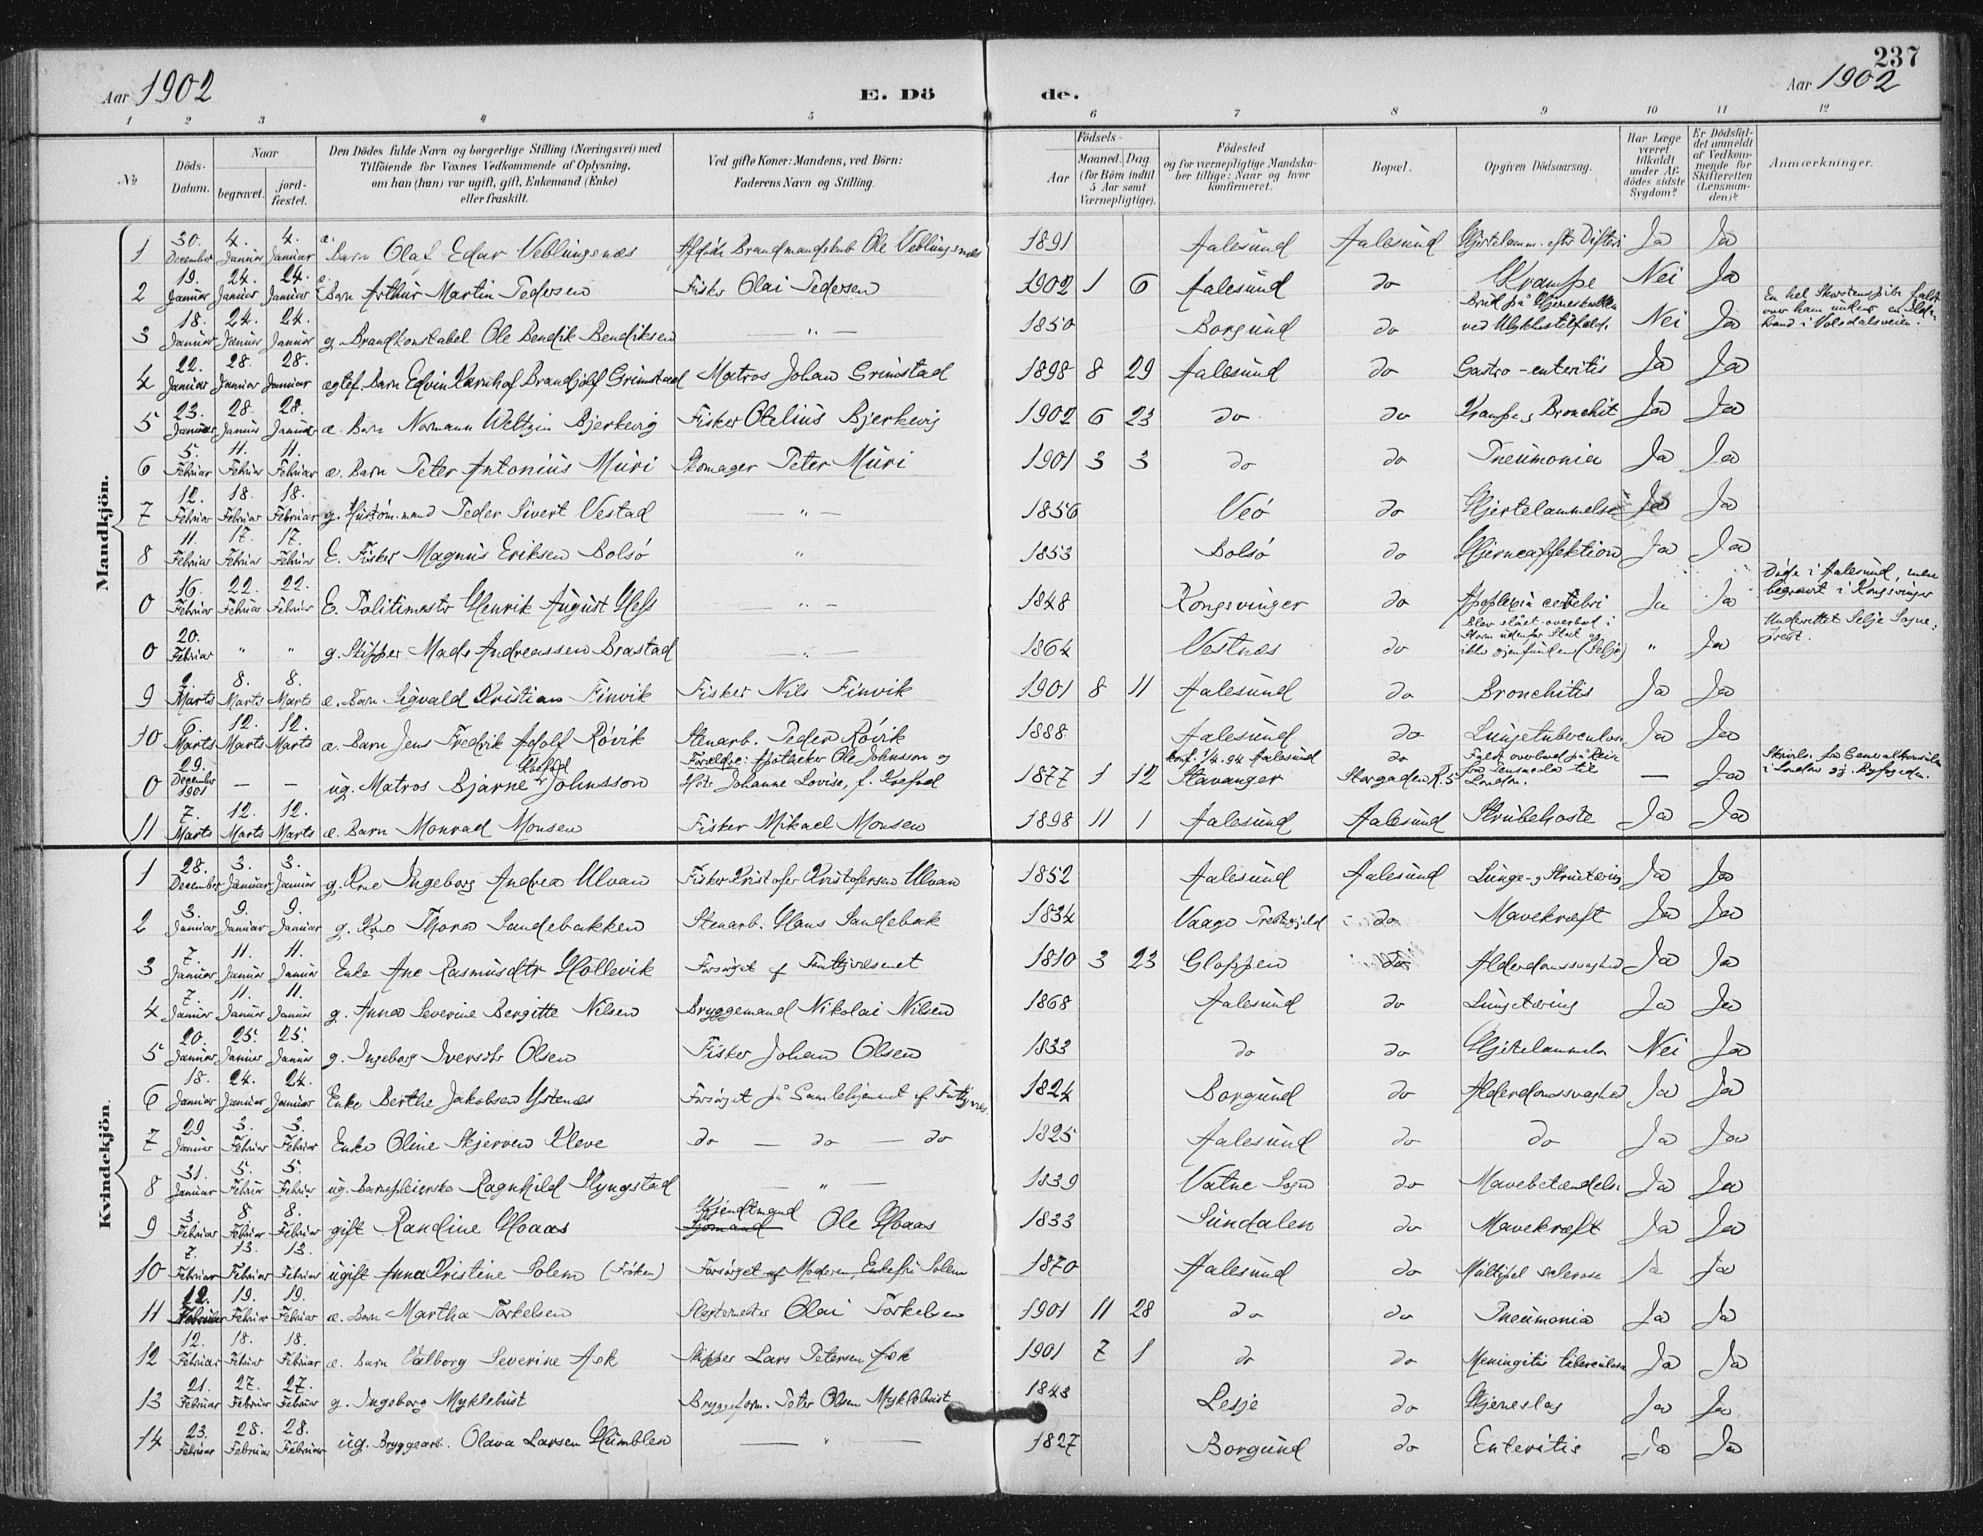 237
Aar 1902 E. Dö de. Aar 1902
1 2 3 4 5 6 7 8 9 10 11 12
№
Döds-Datum.
Naar
begravet.
jord-fæstet.
Den Dödes fulde Navn og borgerlige Stilling (Næringsvei) med
Tilföiende for Voxnes Vedkommende af Oplysning,
om han (hun) var ugift, gift, Enkemand (Enke)
eller fraskilt.
Ved gifte Koner: Mandens, ved Börn:
Faderens Navn og Stilling.
Födsels-
Aar
Maaned. Dag
(for Börn indtil
5 Aar samt
Værnepligtige).
Födested
og for værnepligtige Mandska-
ber tillige: Naar og hvor
konfirmeret.
Bopæl.
Opgiven Dödsaarsag.
Har Læge
været
tilkaldt
under Af-
dödes sidste
Sygdom?
Er Dödsfal-
det anmeldt
af Vedkom-
mende for
Skifteretten
(Lensman-
den)?
Anmærkninger.
Mandkjön.
1 30. December 4. Januar 4. Januar æ. Barn Olaf Edvar Veblungsnes Afdøde Brandmandskab Ole Veblungsnes 1891 Aalesund Aalesund Hjertelamm. efter Difteri Ja Ja
2 19. Januar 24. Januar 24. Januar æ. Barn Arthur Martin Pedersen Fisker Olai Pedersen 1902 1 6 Aalesund do Krampe Nei Ja
3 18. Januar 24. Januar 24. Januar g. Brandkonstabel Ole Bendik Bendiksen — " — 1850 Borgund do Brud på Hjerneskallen ved Ulykkestilfælde. Nei Ja En hel Skorstenspibe faldt over ham under en Ildebrand i Volsdalsveien.
4 22. Januar 28. Januar 28. Januar ægtef. Barn Edvin Brandjolf Grimstad Matros Johan Grimstad 1898 8 29 Aalesund do Gastro-enteritis Ja Ja
5 23. Januar 28. Januar 28. Januar æ. Barn Normann Weltzin Bjerkevig Fisker Otelius Bjerkevig 1902 6 23 do do Krampe, Bronchit Ja Ja
6 5. Februar 11. Februar 11. Februar æ. Barn Peter Antonius Muri Skomager Peter Muri 1901 3 3 do do Pneumonia Ja Ja
7 12. Februar 18. Februar 18. Februar g. Peder Sivert Vestad — " — 1856 Veö do Hjertelammelse Ja Ja
8 11. Februar 17. Februar 17. Februar E. Fisker Magnus Eriksen Bolsö " 1853 Bolsö do Hjerneaffektion Ja Ja
0 16. Februar 22. Februar 22. Februar E. Politimester Henrik August Hess — " — 1848 Kongsvinger do Apoplexia cerebri Ja Ja Døde i Aalesund, men begravet i Kongsvinger
0 20. Februar " " g. Skipper Mads Andreassen Brastad — " — 1864 Vestnes do Blev slået overbord i Storm udenfor Stat og ikke gjenfunden (Selje) " Ja Underrettet Selje Sogneprest.
9 2. Marts 8. Marts 8. Marts æ. Barn Sigvald Kristian Finvik Fisker Nils Finvik 1901 8 11 Aalesund do Bronchitis Ja Ja
10 6 Marts 12. Marts 12. Marts æ. Barn Jens Fredrik Adolf Rövik Stenarb. Peder Rövik 1888 Aalesund do Lungetuberculose Ja Ja
0 29. December 1901 — — ug. Matros Bjarne Johnsson Forældre: Apotheker Ole Johnsson og Johanne Lovise, f. 1877 1 12 konf. 1/4. 94 Aalesund Stavanger do Storgaden R. 5 Faldt overbord på Reise til London. — Ja Skrivelse fra Generalkonsulen i London
11 7. Marts 12. Marts 12. Marts æ. Barn Monrad Monsen Fisker Mikael Monsen 1898 11 1 Aalesund Aalesund Strubehoste Ja Ja
Kvindekjön.
1 28. December 3. Januar 3. Januar g. Kone Ingeborg Andrea Ulvan Fisker Kristofer Kristofersen Ulvan 1852 Aalesund Aalesund Lunge- og Strutæring Ja Ja
2 3. Januar 9. Januar 9. Januar g. Kone Thora Sandebakken Stenarb. Hans Sandebak 1834 Vaage Prestegjeld do Mavekræft Ja Ja
3 7. Januar 11. Januar 11. Januar Enke Ane Rasmusdtr Hollevik Forsørget af Fattigvæsenet 1810 3 23 Gloppen do Alderdomssvaghed Ja Ja
4 7. Januar 11. Januar 11. Januar g. Anna Severine Bergitte Nilsen Bryggemand Nikolai Nilsen 1868 Aalesund do Lungetæring Ja Ja
5 20. Januar 25. Januar 25. Januar g. Ingeborg Iversdtr Olsen Fisker Johan Olsen 1833 do do Hjertelammelse Nei Ja
6 18. Januar 24. Januar 24. Januar Enke Berthe Jakobsen Ystenes Forsørget på Gamlehjemmet af Fattigvæs. 1824 Borgund do Alderdomssvaghed Ja Ja
7 29. Januar 3. Februar 3. Februar Enke Oline Skjerven Kleve do — do — do 1825 Aalesund do do Ja Ja
8 31. Januar 5. Februar 5. Februar ug. Barnepleierske Ragnhild Slyngstad — " — 1839 Vatne Sogn do Mavebetændelse Ja Ja
9 3 Februar 8 Februar 8. Februar gift Randine Hoaas Kjendtmand Sjömand Ole Hoaas 1833 Sundalen do Mavekræft Ja Ja
10 7. Februar 13. Februar 13. Februar ugift Anna Kristine Solem (Frøken) Forsørget af Moderen, Enkefru Solem 1870 Aalesund do Multipel sclerose Ja Ja
11 12. Februar 19. Februar 19. Februar æ. Barn Martha Torkelsen Olai Torkelsen 1901 11 28 do do Pneumonia Ja Ja
12 12. Februar 18. Februar 18. Februar æ. Barn Valborg Severine Ask Skipper Lars Petersen Ask 1901 7 1 do do Meningitis tuberculosa Ja Ja
13 21. Februar 27. Februar 27. Februar g. Ingeborg Myklebust Bryggeform. Peter Olsen Myklebust 1843 Lesje do Hjerneslag Ja Ja
14 23. Februar 28. Februar 28. Februar ug. Bryggearb. Olava Larsen Humblen — " — 1827 Borgund do Enteritis Ja Ja